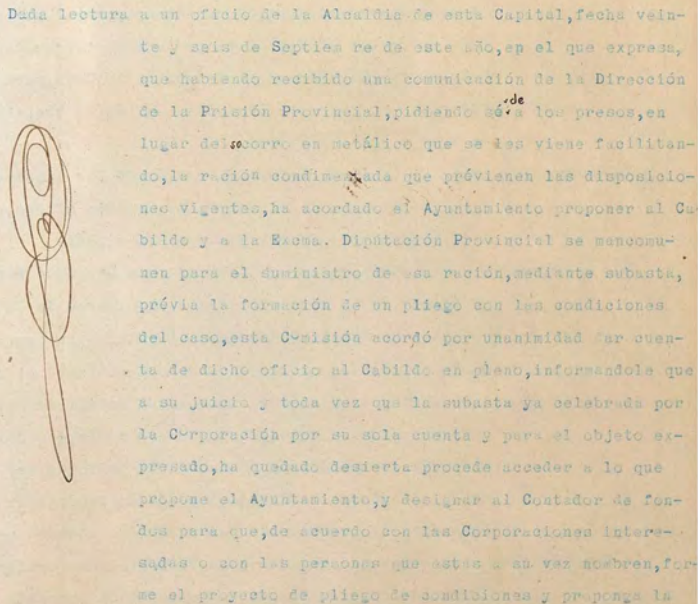 Dada lectura a un oficio de la Alcaldia de esta Capital,fecha vein-
te y seis de Septiem re de este año,en el que expresa,
que habiendo recibido una comunicación de la Dirección
de la Prisión Provincial,pidiendo sé de a los presos,en
lugar del socorro en metálico que se les viene facilitan-
do,la ración condimentada que prévienen las disposicio-
nes vigentes,ha acordado el Ayuntamiento proponer al Ca-
bildo y a la Excma. Diputación Provincial se mancomu-
nen para el suministro de esa ración,mediante subasta,
prévia la formación de un pliego con las condiciones
del caso,esta Comisión acordó por unanimidad dar cuen-
ta de dicho oficio al Cabildo en pleno,informandole que
a su juicio y toda vez que la subasta ya celebrada por
la Corporación por su sola cuenta y para el objeto ex-
presado,ha quedado desierta procede acceder a lo que
propone el Ayuntamiento,y designar al Contador de fon-
dos para que,de acuerdo con las Corporaciones intere-
sadas o con las personas que estas a su vez nombren,for-
me el proyecto de pliego de condiciones y proponga la